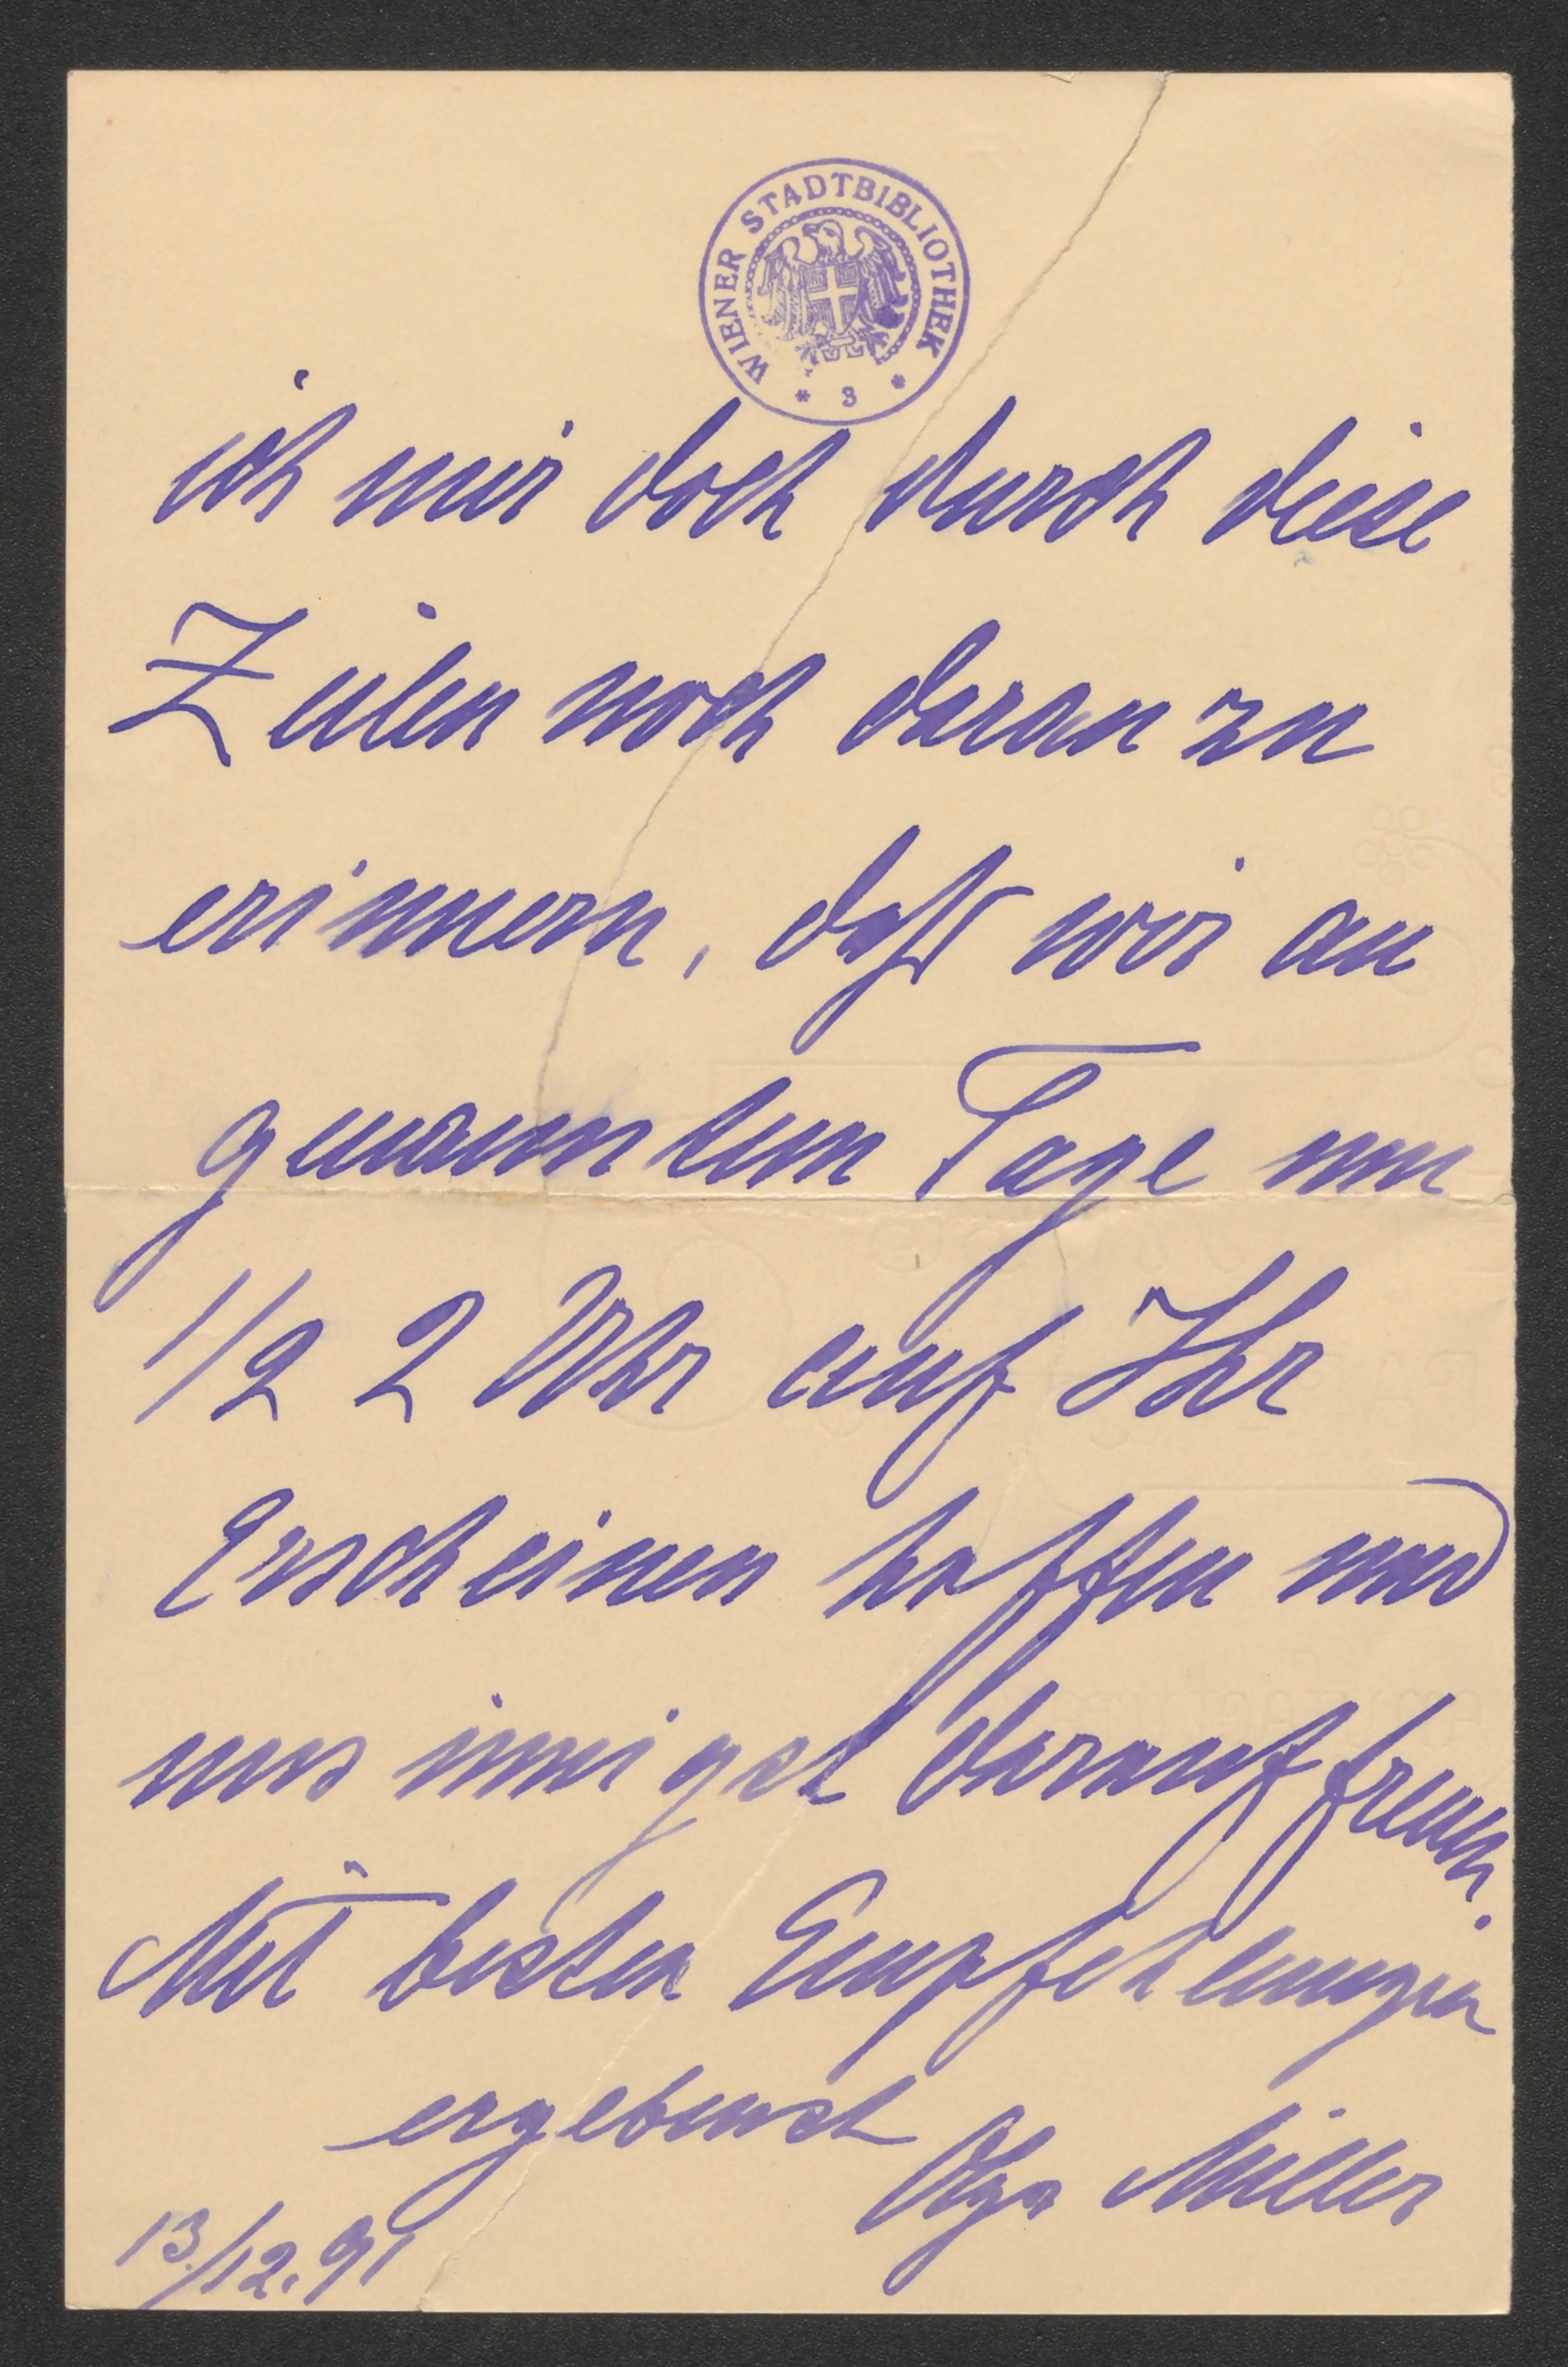 WIENER STADTBIBLIOTHEK
* 3 *
ich mir doch durch diese
Zeilen noch daran zu
erinnern, daß wir an
genanntem Tage um
1/2 2 Uhr auf Ihr
Erscheinen hoffen und
uns innigst darauf freuen.
Mit besten Empfehlungen
ergebenst Olga Miller
13/12.91